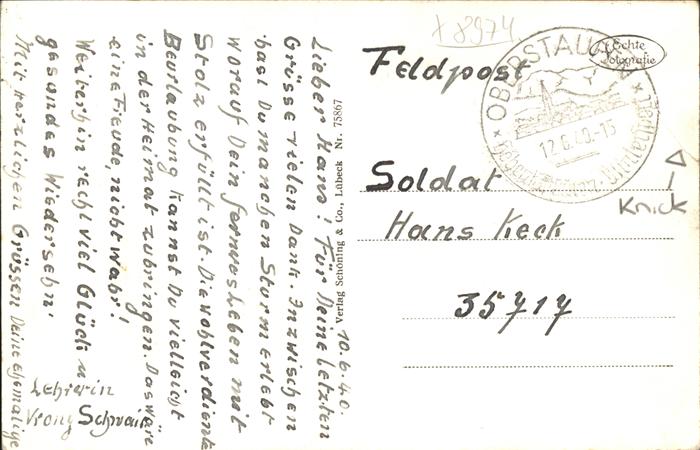 10.6.40.
Lieber Hans! Für Deine letzten
Grüsse vielen Dank. Inzwischen
hast Du manchen Sturm erlebt
worauf Dein ferneres Leben mit
Stolz erfüllt ist. Die wohlverdiente
Beurlaubung kannst Du vielleicht
in der Heimat zubringen. Das wäre
eine Freude, nicht wahr!
Weiterhin recht viel Glück u.
gesundes Wiedersehn.
Mit herzlichen Grüssen Deine ehemalige
Lehrerin
Schwair
Verlag Schöning & Co., Lübeck Nr. 75867
X 8974
Feldpost
Echte
Fotografie
OBERSTAUFEN
12.6.40.-15
Soldat
Knick
Hans Keck
35717